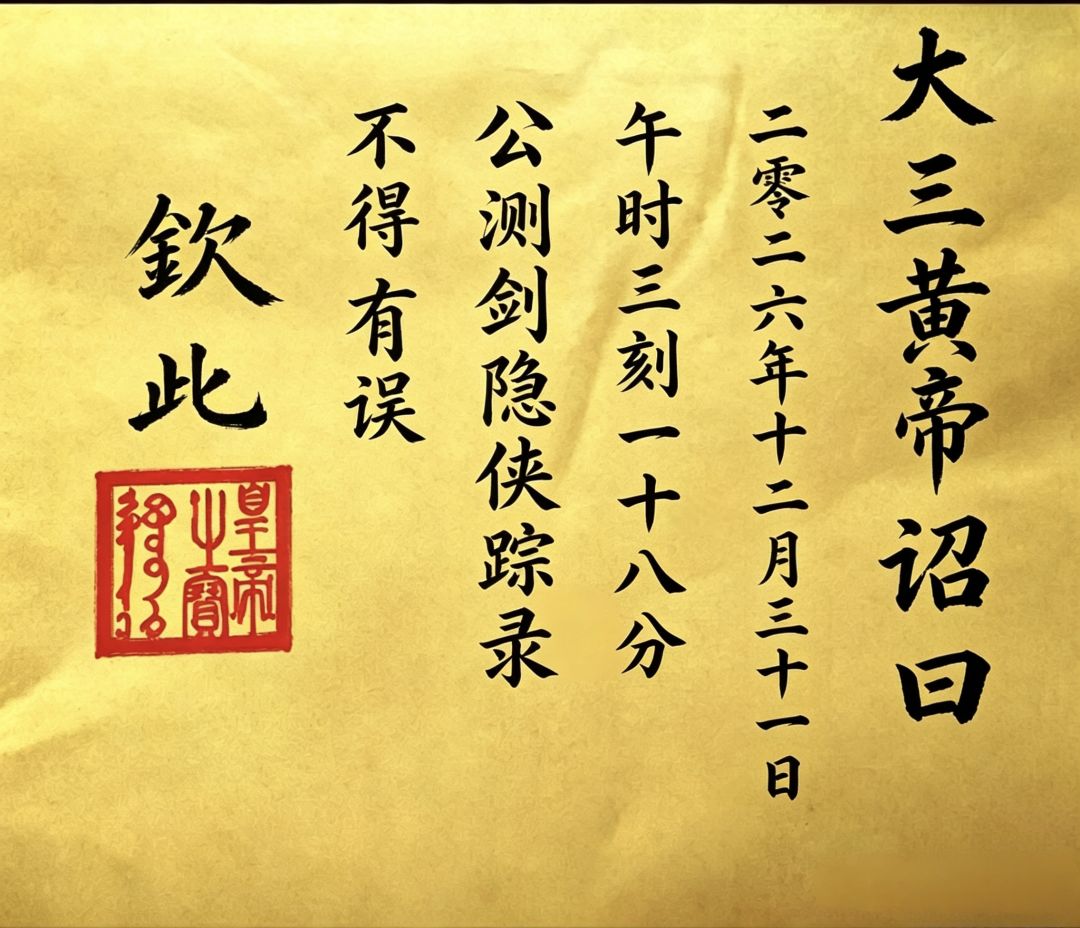 大三黄帝诏曰
二零二六年十二月三十一日
午时三刻一十八分
公测剑隐侠踪录
不得有误
欽此
皇帝之寶